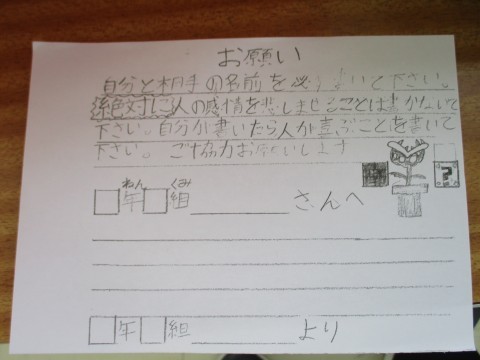 お願い
自分と相手の名前を必ず書いて下さい。
絶対に人の感情を悲しませることは書かないで
下さい。自分が書いたら人が喜ぶことを書いて
下さい。ご協力お願いします
ねん くみ
□年□組＿＿＿＿＿さんへ
?
□年□組＿＿＿＿＿より